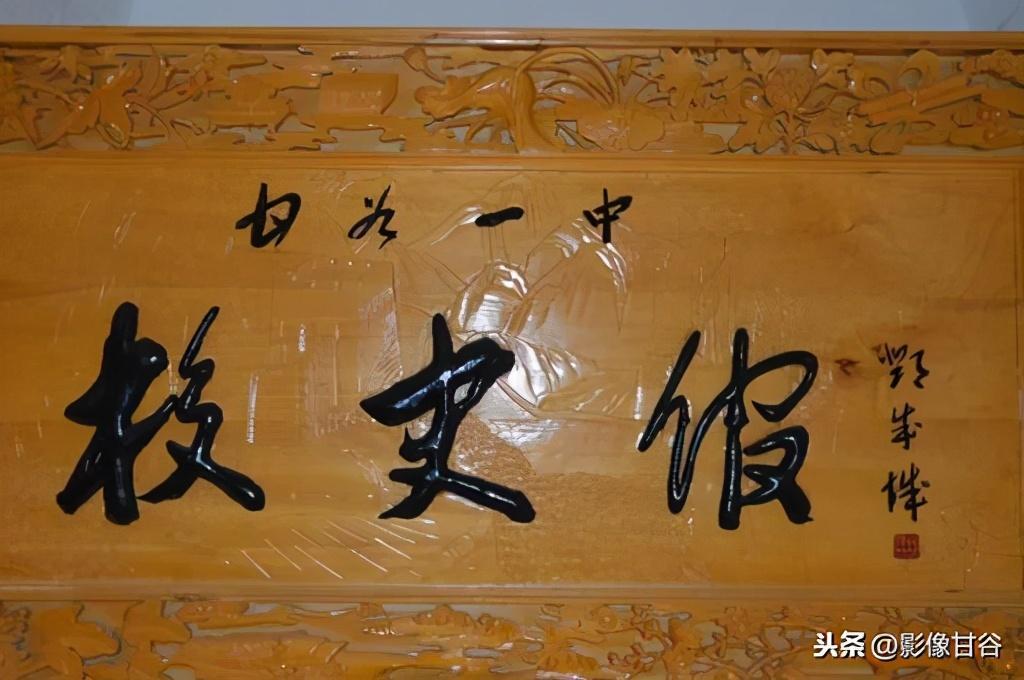 甘谷一中
校史馆
鄧成城
头条 @影像甘谷